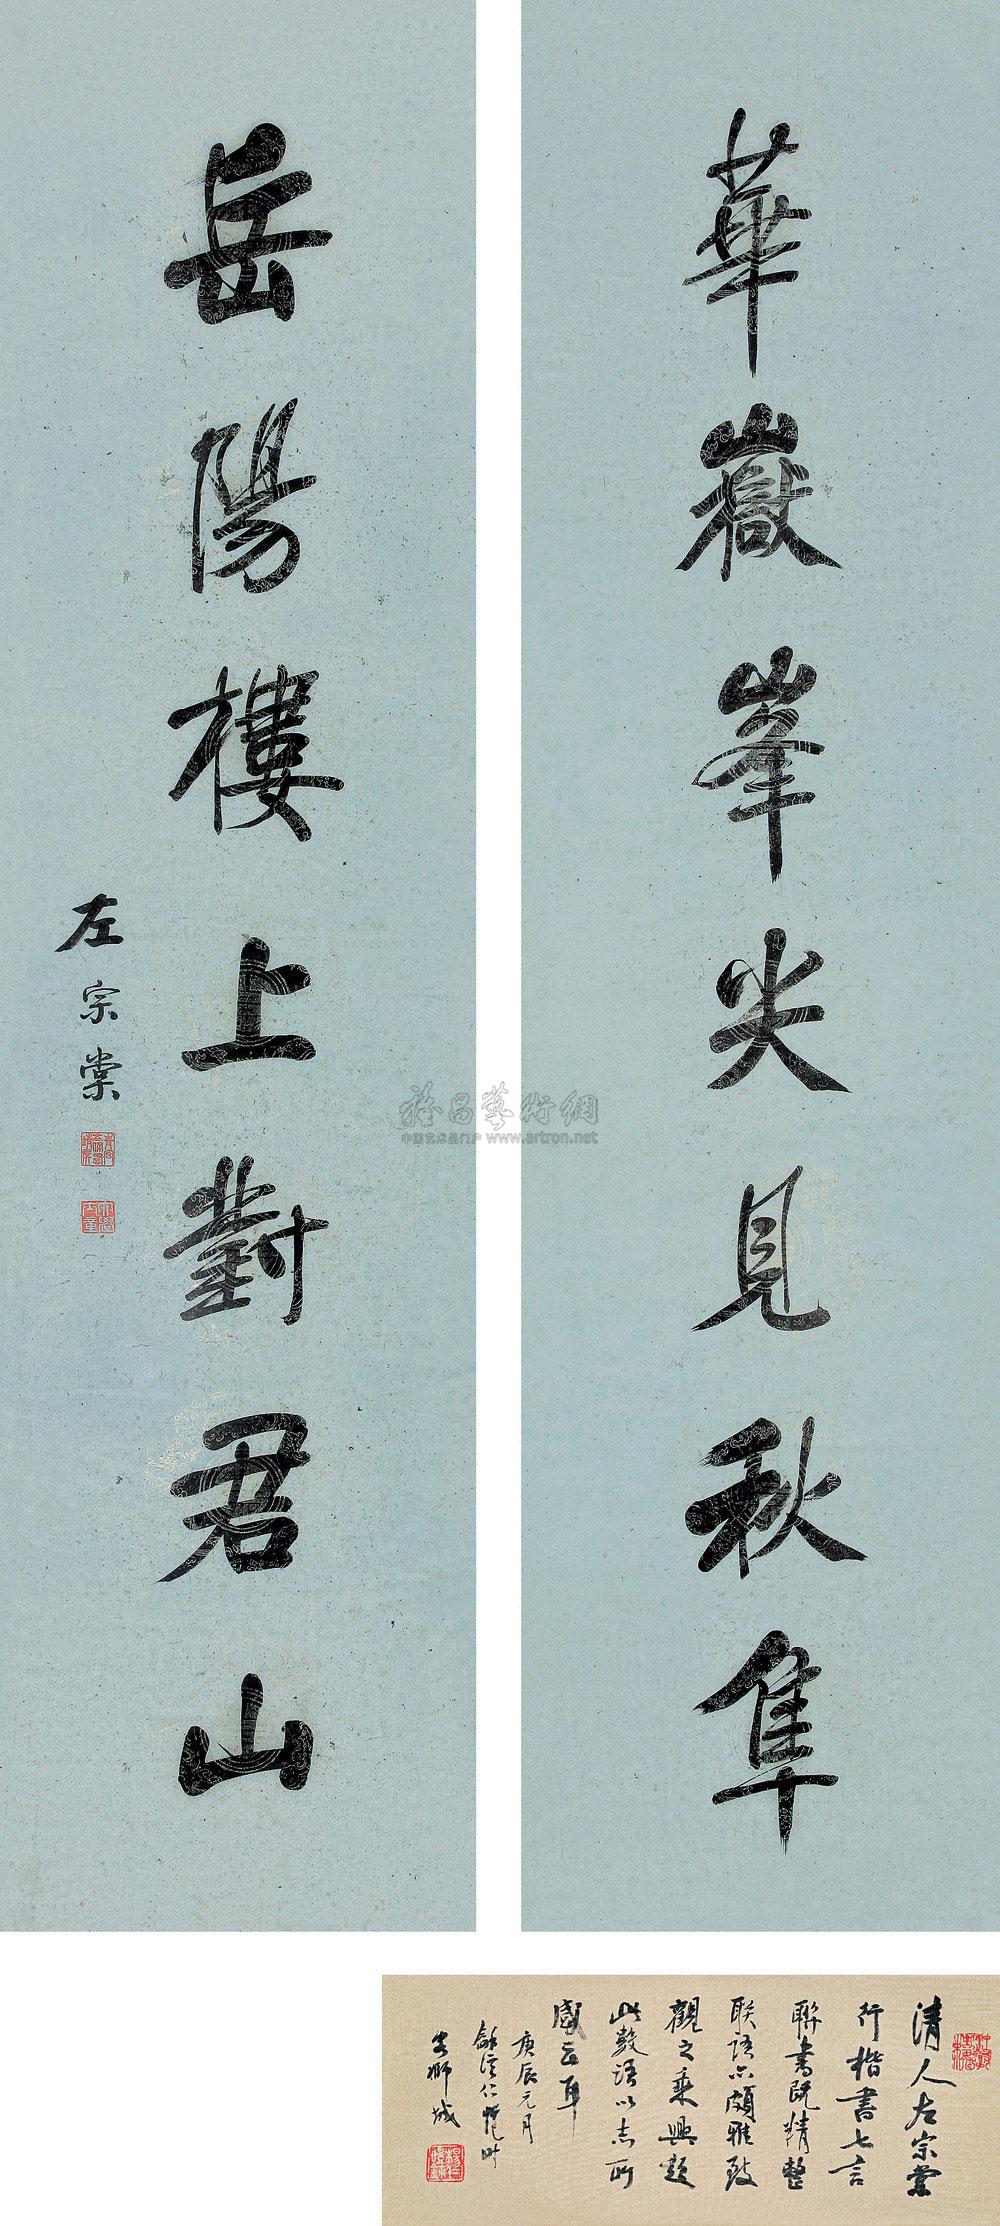 華嶽峯尖見秋隼
岳陽樓上對君山
左宗棠
清人左宗棠
行楷書七言
聯書既精整
联語亦頗雅致
觀之乘興題
此數語以志所
感云耳
庚辰元月
獅城
中国艺术品门户 www.artron.net